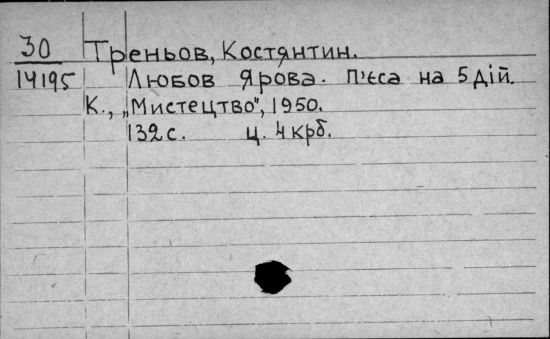 30 Треньов, Костянтин.
14195 Любов Ярова. П'єса на 5 дій.
К., „Мистецтво", 1950.
132 с. ц. 4 крб.